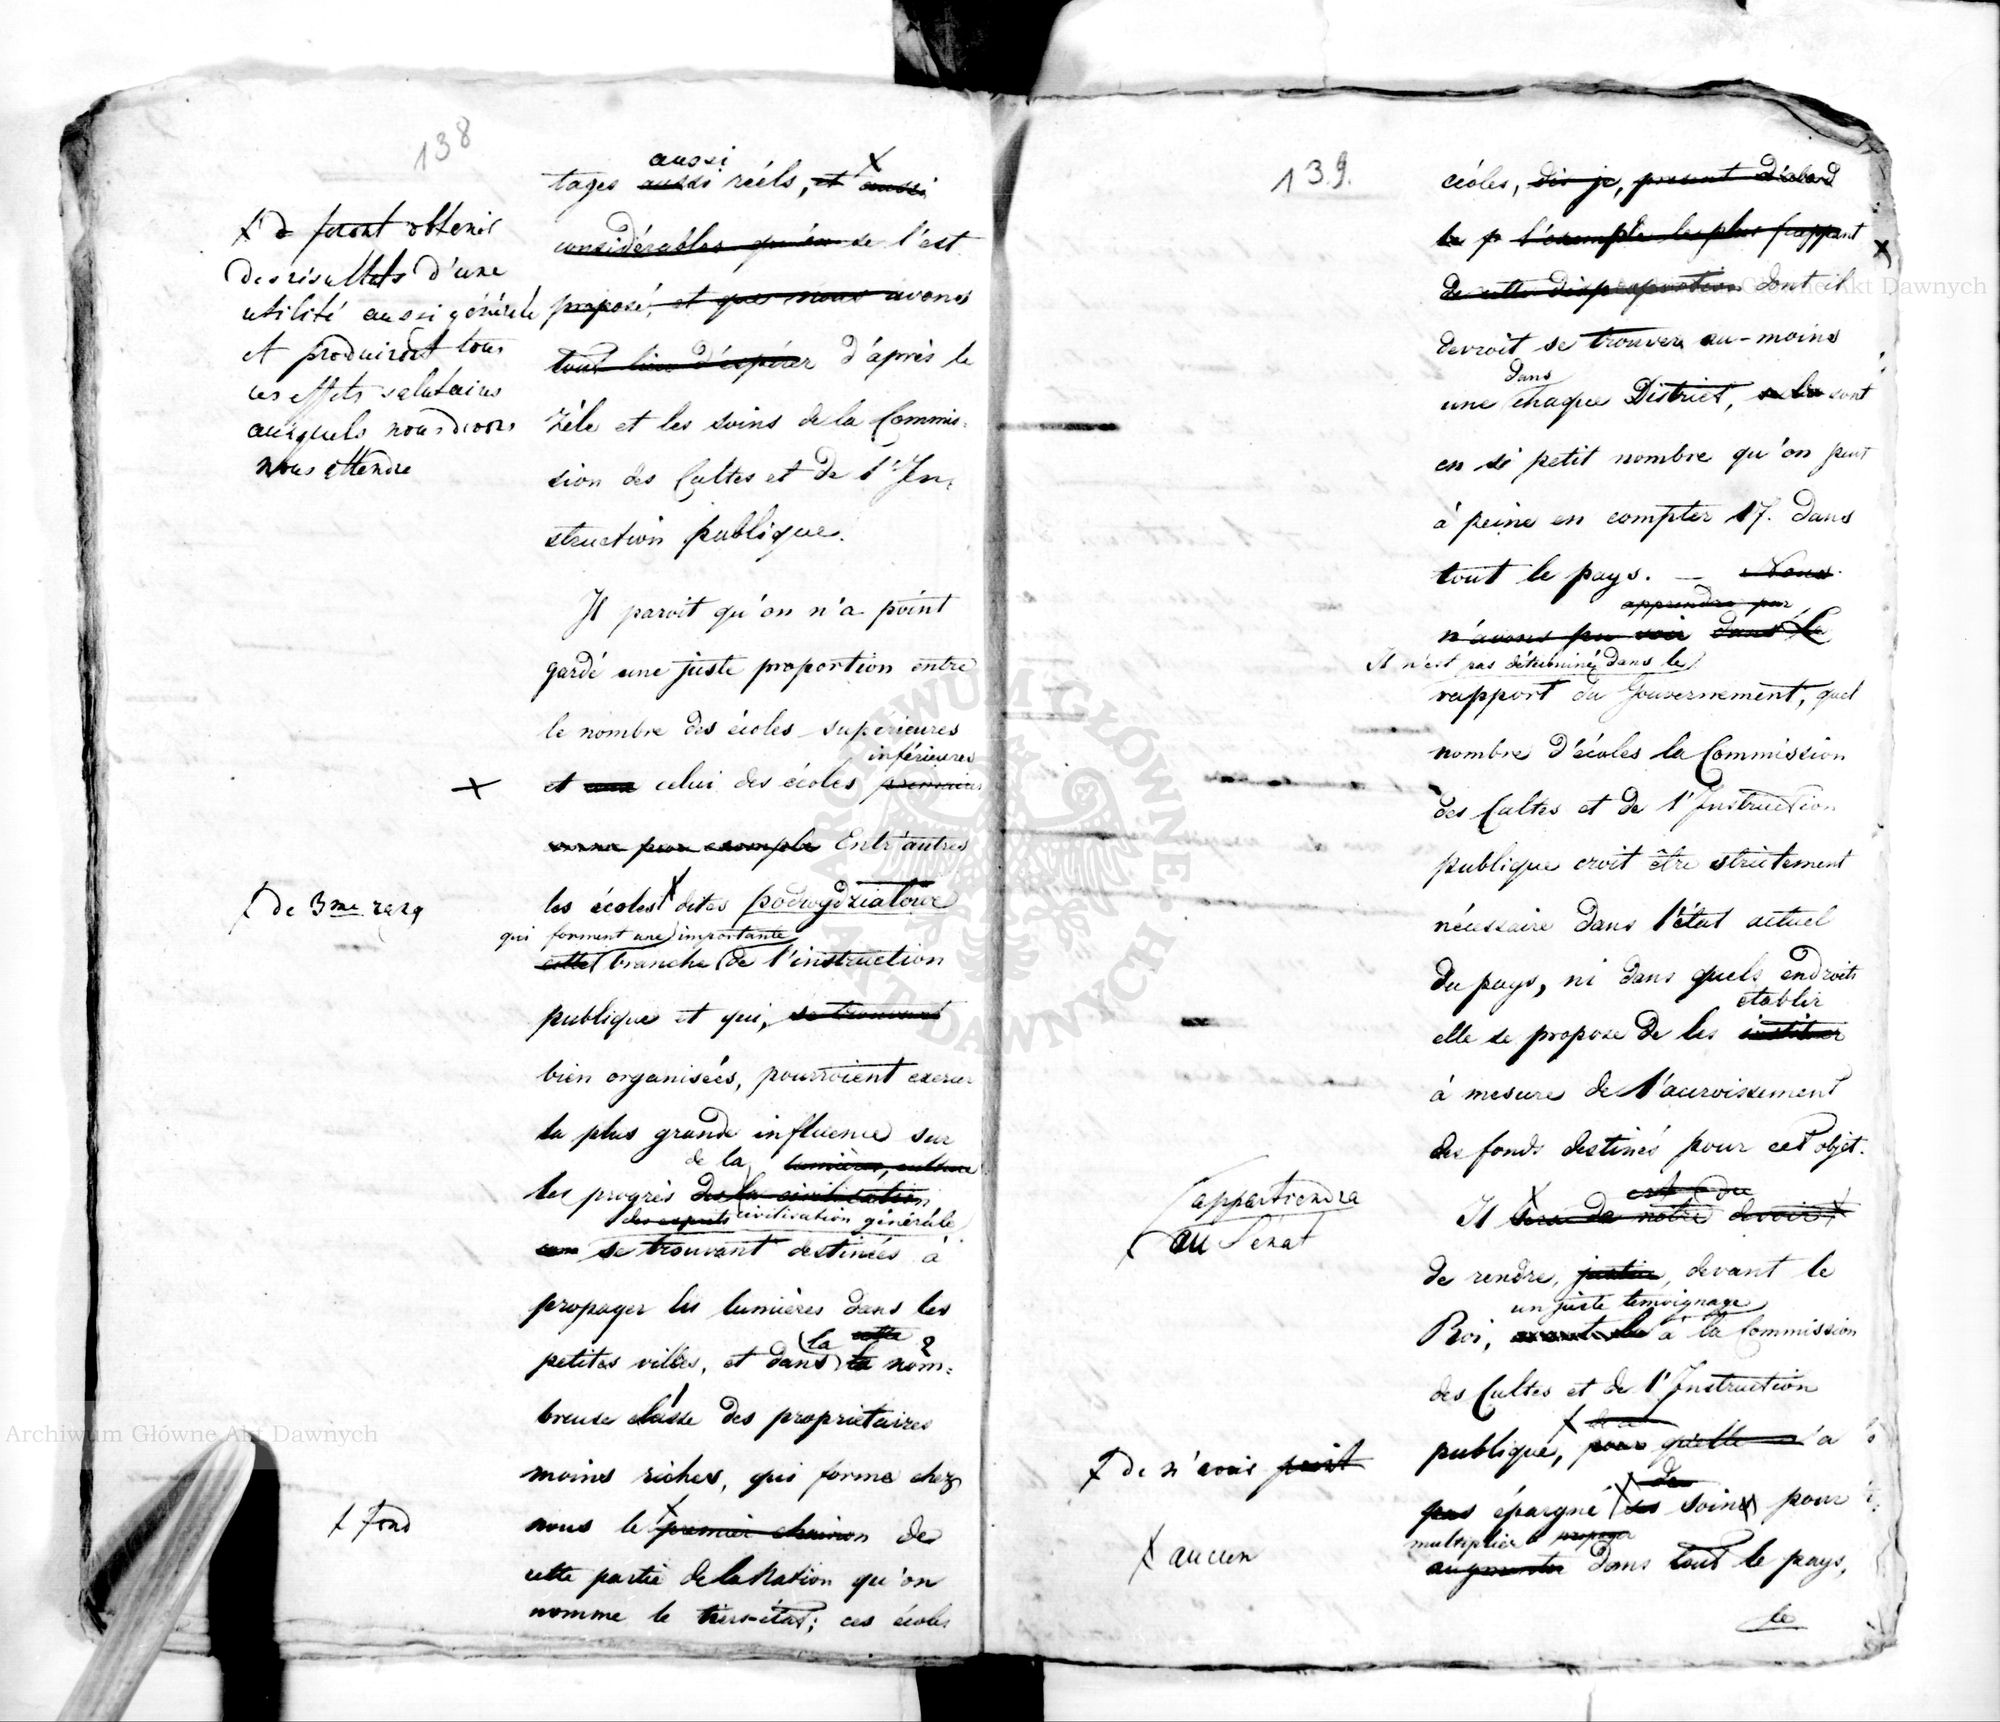 138
aussi
tages aussi réels, et aussi
considérables qu'on se l'est
proposé, et que nous avons
tout lieu d'espérer d'après le
zèle et les soins de la Commis=
sion des Cultes et de l'In=
struction publique.
feront obtenir
des résultats d'une
utilité aussi générale
et produiront tous
ces effets salutaires
auxquels nous devons
nous attendre
Il paroit qu'on n'a point
gardé une juste proportion entre
le nombre des écoles supérieures
inférieures
et celui des écoles
pour exemple Entr'autres
de 3me rang
les écoles dites podwydziałowe
qui forment une importante
cette branche de l'instruction
publique et qui, se trouvant
bien organisées, pourroient exercer
la plus grande influence sur
de la lumière, culture
les progrès des la civilisation
des esprits civilisation générale
se trouvant destinées à
propager les lumières dans les
la cette
petites villes, et dans la nom=
breuse classe des propriétaires
moins riches, qui forme chez
fond
nous le premier chainon de
cette partie de la Nation qu'on
nomme le tiers-état; ces écoles
139.
écoles, dis je, present d'abord
l'exemple les plus frappant
de cette disproportion dont il
devroit se trouver au-moins
dans
une chaque District, sont
en si petit nombre qu'on peut
à peine en compter 17. dans
tout le pays. — Nous
apprendre par
n'avons pu voir dans le
Il n'est pas déterminé dans le
rapport du Gouvernement, quel
nombre d'écoles la Commission
des Cultes et de l'Instruction
publique croit être strictement
nécessaire dans l'état actuel
du pays, ni dans quels endroits
établir
elle se propose de les instituer
à mesure de l'accroissement
des fonds destinés pour cet objet.
appartiendra
au Sénat
est du
Il sera de notre devoir
de rendre, justice, devant le
un juste temoignage
Roi, à la Commission
des Cultes et de l'Instruction
de n'avoir point
publique, pour qu'elle n'a
de
pas épargné des soins pour
aucun
multiplier propager
augmenter dans tout le pays,
le
Archiwum Główne Akt Dawnych
Archiwum Główne Akt Dawnych
ARCHIWUM GŁÓWNE AKT DAWNYCH